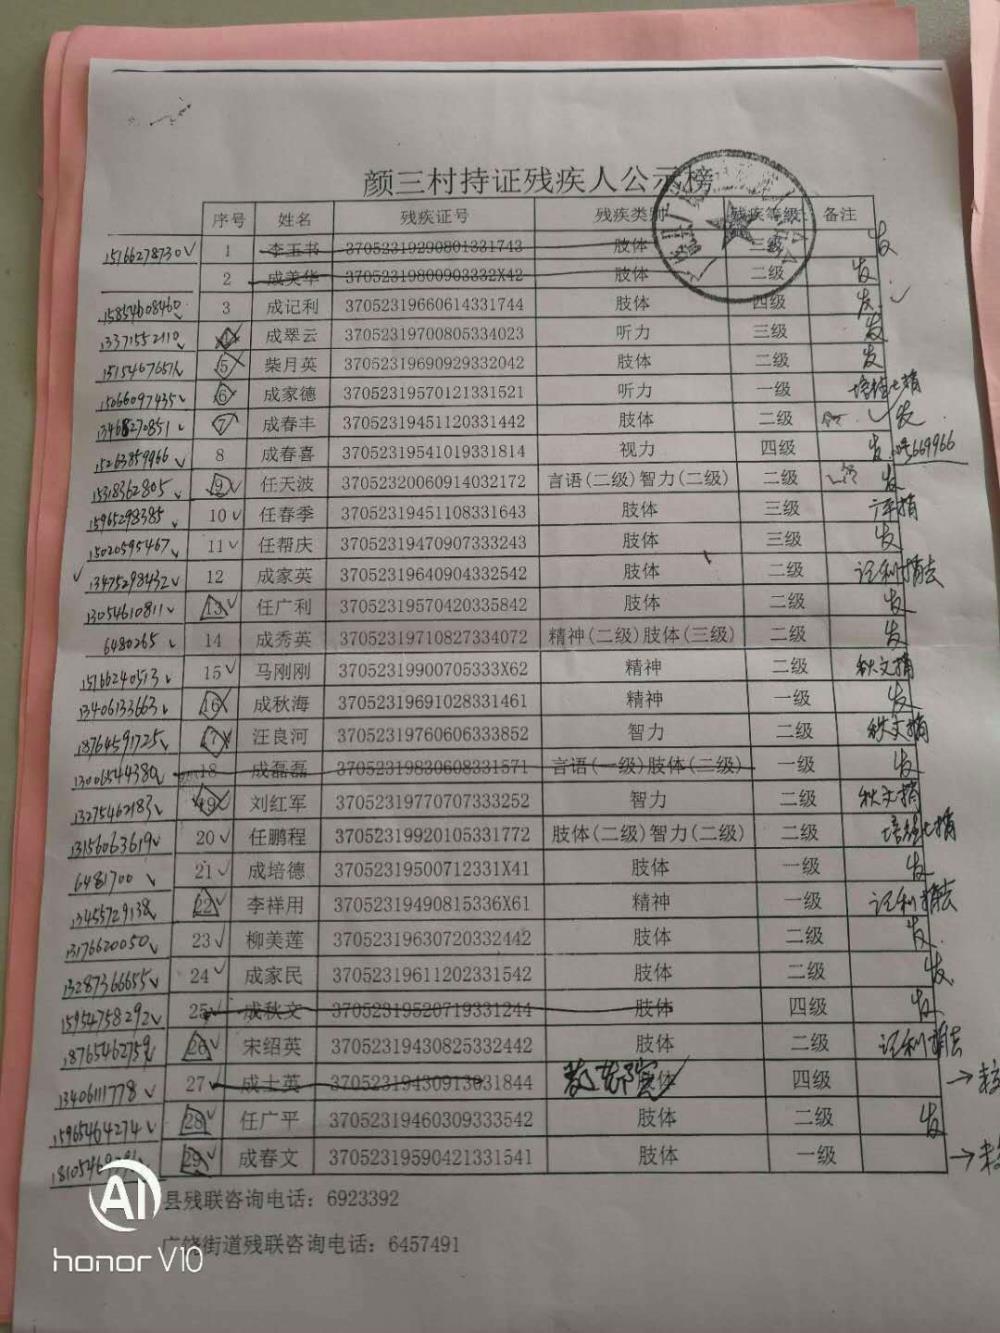 颜三村持证残疾人公示榜
序号 姓名 残疾证号 残疾类别 残疾等级 备注
15166278730 1 李玉书 37052319290801331743 肢体 三级 发
2 成美华 37052319800903332X42 肢体 二级 发
15854608460 3 成记利 37052319660614331744 肢体 四级 发
13371552110 4 成翠云 37052319700805334023 听力 三级 发
5 柴月英 37052319690929332042 肢体 二级 发
15066097435 6 成家德 37052319570121331521 听力 一级
7 成春丰 37052319451120331442 肢体 二级 发
15263859966 8 成春喜 37052319541019331814 视力 四级 发 669966
15318362805 9 任天波 37052320060914032172 言语(二级)智力(二级) 二级 发
15965298385 10 任春季 37052319451108331643 肢体 三级
15020595467 11 任帮庆 37052319470907333243 肢体 三级 发
13475298432 12 成家英 37052319640904332542 肢体 二级 记利捎去
13054610811 13 任广利 37052319570420335842 肢体 二级 发
6480265 14 成秀英 37052319710827334072 精神(二级)肢体(三级) 二级 发
15166240513 15 马刚刚 37052319900705333X62 精神 二级 秋文捎
13406133663 16 成秋海 37052319691028331461 精神 一级 发
18764591725 17 汪良河 37052319760606333852 智力 二级 秋文捎
13006544380 18 成磊磊 37052319830608331571 言语(一级)肢体(二级) 一级 发
13275462183 19 刘红军 37052319770707333252 智力 二级 秋文捎
13156063619 20 任鹏程 37052319920105331772 肢体(二级)智力(二级) 二级
6481700 21 成培德 37052319500712331X41 肢体 一级 发
13455729138 22 李祥用 37052319490815336X61 精神 一级 记利捎去
13176620050 23 柳美莲 37052319630720332442 肢体 二级 发
13287366655 24 成家民 37052319611202331542 肢体 二级 发
15954758292 25 成秋文 37052319520719331244 肢体 四级 发
18765462759 26 宋绍英 37052319430825332442 肢体 二级 记利捎去
13406111778 27 成士英 37052319430913031844 肢体 四级 →
15965464274 28 任广平 37052319460309333542 肢体 二级 发
29 成春文 37052319590421331541 肢体 一级 →
县残联咨询电话：6923392
广饶街道残联咨询电话：6457491
AI
honor V10